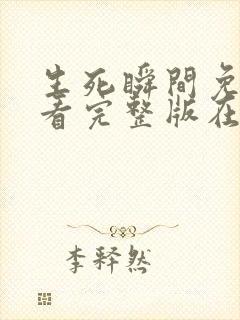 生死瞬間免
看完整版在
李释然